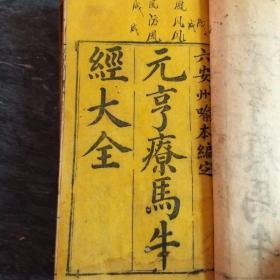 六安州喻本編定
元亨療馬牛
經大全